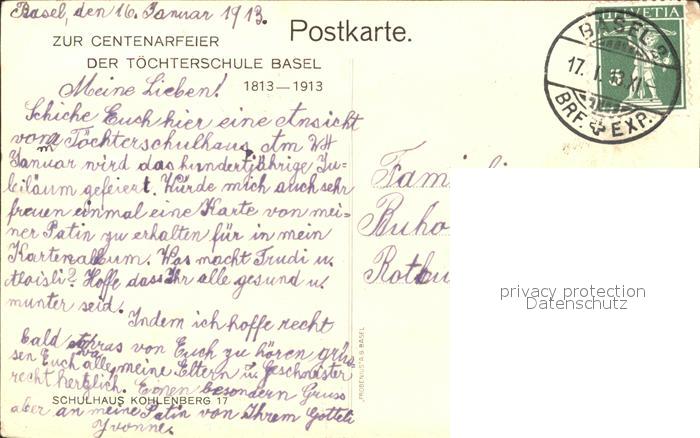 Basel, den 16. Januar 1913.
Postkarte.
ZUR CENTENARFEIER
DER TÖCHTERSCHULE BASEL
1813—1913
Meine Lieben!
Schicke Euch hier eine Ansicht
vom Töchterschulhaus. Am
Januar wird das hundertjährige Ju-
biläum gefeiert. Würde mich auch sehr
freuen einmal eine Karte von mei-
ner Patin zu erhalten für in mein
Kartenalbum. Was macht Trudi u.
Aloisli? Hoffe dass Ihr alle gesund u.
munter seid.
Indem ich hoffe recht
bald etwas von Euch zu hören grüs-
sen Euch alle meine Eltern u. Geschwister
recht herzlich. Einen besondern Gruss
SCHULHAUS KOHLENBERG 17
aber an meine Patin von Ihrem Gotteli
Yvonne.
"FROBENIUS" A.G. BASEL
HELVETIA
BASEL 2
17. I. 13. XI
BRF. EXP.
Famili
Buho
Rothu
privacy protection
Datenschutz